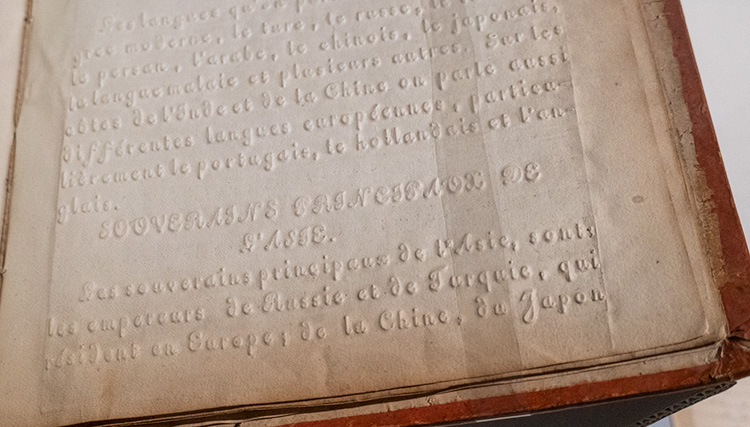 Les langues qu'on
grec moderne, le turc, le russe, le
le persan, l'arabe, le chinois, le japonais,
la langue malaie et plusieurs autres. Sur les
côtes de l'Inde et de la Chine on parle aussi
différentes langues européennes, particu-
lièrement le portugais, le hollandais et l'an-
glais.
SOUVERAINS PRINCIPAUX DE
L'ASIE.
Les souverains principaux de l'Asie, sont:
les empereurs de Russie et de Turquie, qui
résident en Europe; de la Chine, du Japon